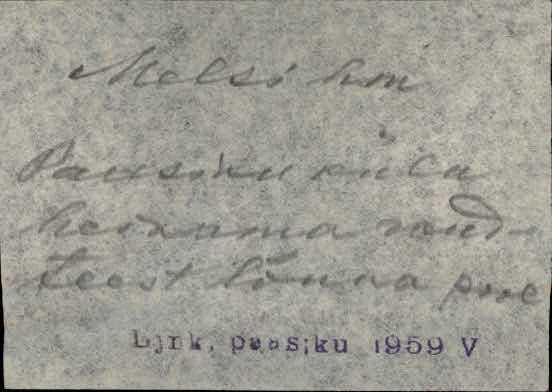 Metsi hm
Pausiku küla
heinama raud-
teest lõuna pool
Lyrk, paasiku 1959 V